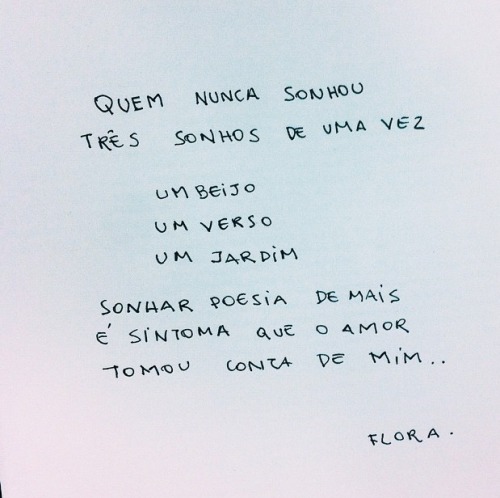 QUEM NUNCA SONHOU
TRÊS SONHOS DE UMA VEZ
UM BEIJO
UM VERSO
UM JARDIM
SONHAR POESIA DE MAIS
É SINTOMA QUE O AMOR
TOMOU CONTA DE MIM..
FLORA.